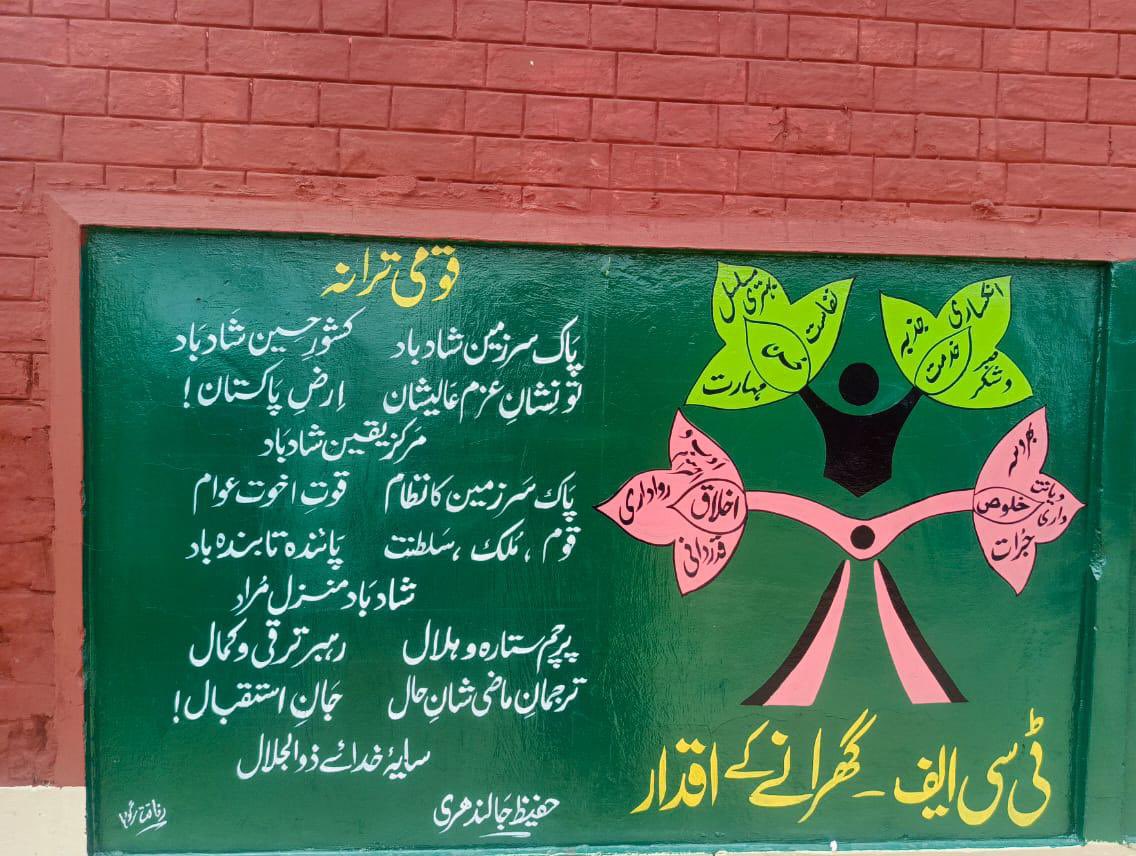 قومی ترانہ
پاک سرزمین شاد باد کشورِ حسین شاد باد
تو نِشانِ عزمِ عالیشان اِرضِ پاکستان!
مرکزِ یقین شاد باد
پاک سَرزمین کا نظام قوتِ اخوتِ عوام
قوم ، مُلک ، سَلطنت پائندہ تابندہ باد
شاد باد منزلِ مُراد
پرچم ستارہ و ہلال رہبرِ ترقی و کمال
ترجمانِ ماضی شانِ حال جَانِ استقبال!
سایۂ خدائے ذوالجلال
حفیظ جَالندھری
مسلسل بہتری
نفاست
مہارت
انکساری
جذبہ
خدمت
صبر و شکر
رواداری
اخلاق
قدردانی
دیانت داری
خلوص
جرُات
ٹی سی ایف - گھرانے کے اقدار